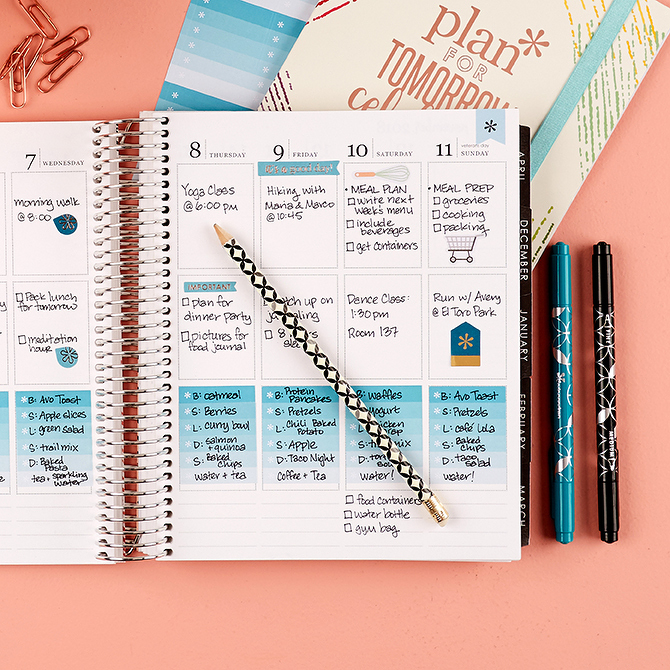 plan*
FOR
TOMORROW
7 WEDNESDAY
morning walk
@ 8:00
Pack lunch
for tomorrow
meditation
hour
B: Avo Toast
S: Apple slices
L: green salad
S: trail mix
D: Baked
Pasta
tea + sparkling
water
8 THURSDAY
Yoga Class
@ 6:00 pm
IMPORTANT
plan for
dinner party
pictures for
food journal
B: oatmeal
S: Berries
L: curry bowl
D: salmon
+ quinoa
S: Baked
chips
water + tea
9 FRIDAY
Hiking with
Maria & Marco
@ 10:45
up on
B: Protein
Pancakes
S: Pretzels
L: Chili Baked
Potato
S: Apple
D: Taco Night
Coffee + Tea
10 SATURDAY
• MEAL PLAN
write next
week's menu
include
beverages
get containers
Dance Class:
1:30 pm
Room 137
B: Waffles
food containers
water bottle
gym bag
veteran's day
11 SUNDAY
• MEAL PREP
groceries
cooking
packing
Run w/ Avery
@ El Toro Park
B: Avo Toast
S: Pretzels
L: café Lola
S: Baked
chips
D: taco
salad
water!
APRIL
DECEMBER
JANUARY
FEBRUARY
MARCH